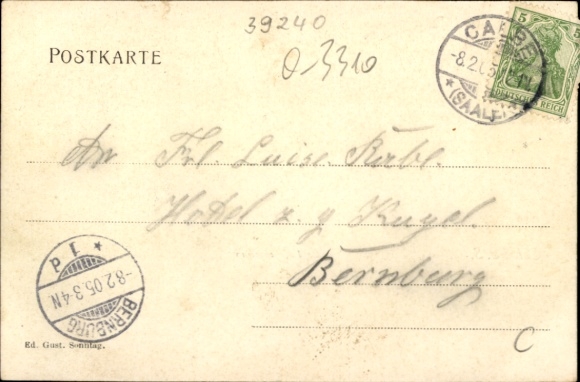 39240
0-3310
POSTKARTE
CALBE
-8.2.05.
* (SAALE) *
5 5
DEUTSCHES REICH
An Frl. Luise Rabe.
Hotel z. g. Kugel.
Bernburg
* 1 d
-8.2.05.3-4N
BERNBURG
C
Ed. Gust. Sonntag.